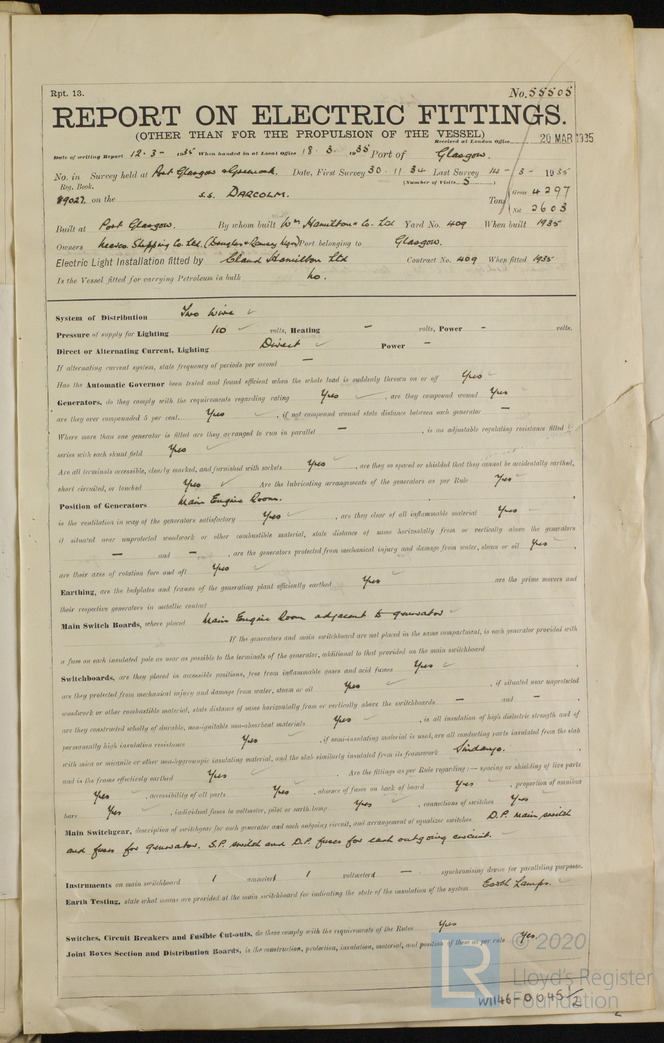 Rpt. 13.
No. 55505
REPORT ON ELECTRIC FITTINGS.
(OTHER THAN FOR THE PROPULSION OF THE VESSEL)
Received at London Office 20 MAR 1935
Date of writing Report 12-3- 1935 When handed in at Local Office 18.3. 1935 Port of Glasgow.
No. in Survey held at Port Glasgow & Greenock. Date, First Survey 30.11.34 Last Survey 14-3-1935
Reg. Book. (Number of Visits 5)
89027 on the s.s. DARCOLM. Tons Gross 4297
Net 2603
Built at Port Glasgow. By whom built Wm Hamilton & Co. Ltd Yard No. 409 When built 1935
Owners Shipping Co. Ltd. Port belonging to Glasgow.
Electric Light Installation fitted by Claud Hamilton Ltd Contract No. 409 When fitted 1935
Is the Vessel fitted for carrying Petroleum in bulk No.
System of Distribution Two Wire
Pressure of supply for Lighting 110 volts, Heating - volts, Power - volts.
Direct or Alternating Current, Lighting Direct Power -
If alternating current system, state frequency of periods per second -
Has the Automatic Governor been tested and found efficient when the whole load is suddenly thrown on or off Yes
Generators, do they comply with the requirements regarding rating Yes, are they compound wound Yes
are they over compounded 5 per cent. Yes, if not compound wound state distance between each generator -
Where more than one generator is fitted are they arranged to run in parallel -, is an adjustable regulating resistance fitted in
series with each shunt field Yes
Are all terminals accessible, clearly marked, and furnished with sockets Yes, are they so spaced or shielded that they cannot be accidentally earthed,
short circuited, or touched Yes Are the lubricating arrangements of the generators as per Rule Yes
Position of Generators Main Engine Room.
is the ventilation in way of the generators satisfactory Yes, are they clear of all inflammable material Yes
if situated near unprotected woodwork or other combustible material, state distance of same horizontally from or vertically above the generators
- and -, are the generators protected from mechanical injury and damage from water, steam or oil Yes,
are their axes of rotation fore and aft Yes
Earthing, are the bedplates and frames of the generating plant efficiently earthed Yes are the prime movers and
their respective generators in metallic contact
Main Switch Boards, where placed Main Engine Room adjacent to generator
If the generators and main switchboard are not placed in the same compartment, is each generator provided with
a fuse on each insulated pole as near as possible to the terminals of the generator, additional to that provided on the main switchboard
Switchboards, are they placed in accessible positions, free from inflammable gases and acid fumes Yes,
are they protected from mechanical injury and damage from water, steam or oil Yes, if situated near unprotected
woodwork or other combustible material, state distance of same horizontally from or vertically above the switchboards - and -,
are they constructed wholly of durable, non-ignitable non-absorbent materials Yes, is all insulation of high dielectric strength and of
permanently high insulation resistance Yes, if semi-insulating material is used, are all conducting parts insulated from the slab
with mica or micanite or other non-hygroscopic insulating material, and the slab similarly insulated from its framework Sindanyo.
and is the frame effectively earthed Yes. Are the fittings as per Rule regarding:— spacing or shielding of live parts
Yes, accessibility of all parts Yes, absence of fuses on back of board Yes, proportion of omnibus
bars Yes, individual fuses to voltmeter, pilot or earth lamp Yes, connections of switches Yes
Main Switchgear, description of switchgear for each generator and each outgoing circuit, and arrangement of equalizer switches D.P. main switch
and fuses for generator. S.P. switch and D.P. fuses for each outgoing circuit.
Instruments on main switchboard 1 ammeters 1 voltmeters - synchronising device for paralleling purposes.
Earth Testing, state what means are provided at the main switchboard for indicating the state of the insulation of the system Earth Lamps.
Switches, Circuit Breakers and Fusible Cut-outs, do these comply with the requirements of the Rules Yes
Joint Boxes Section and Distribution Boards, is the construction, protection, insulation, material, and position of these as per rule Yes.
© 2020
Lloyd's Register
Foundation
W1146-0045 1/2